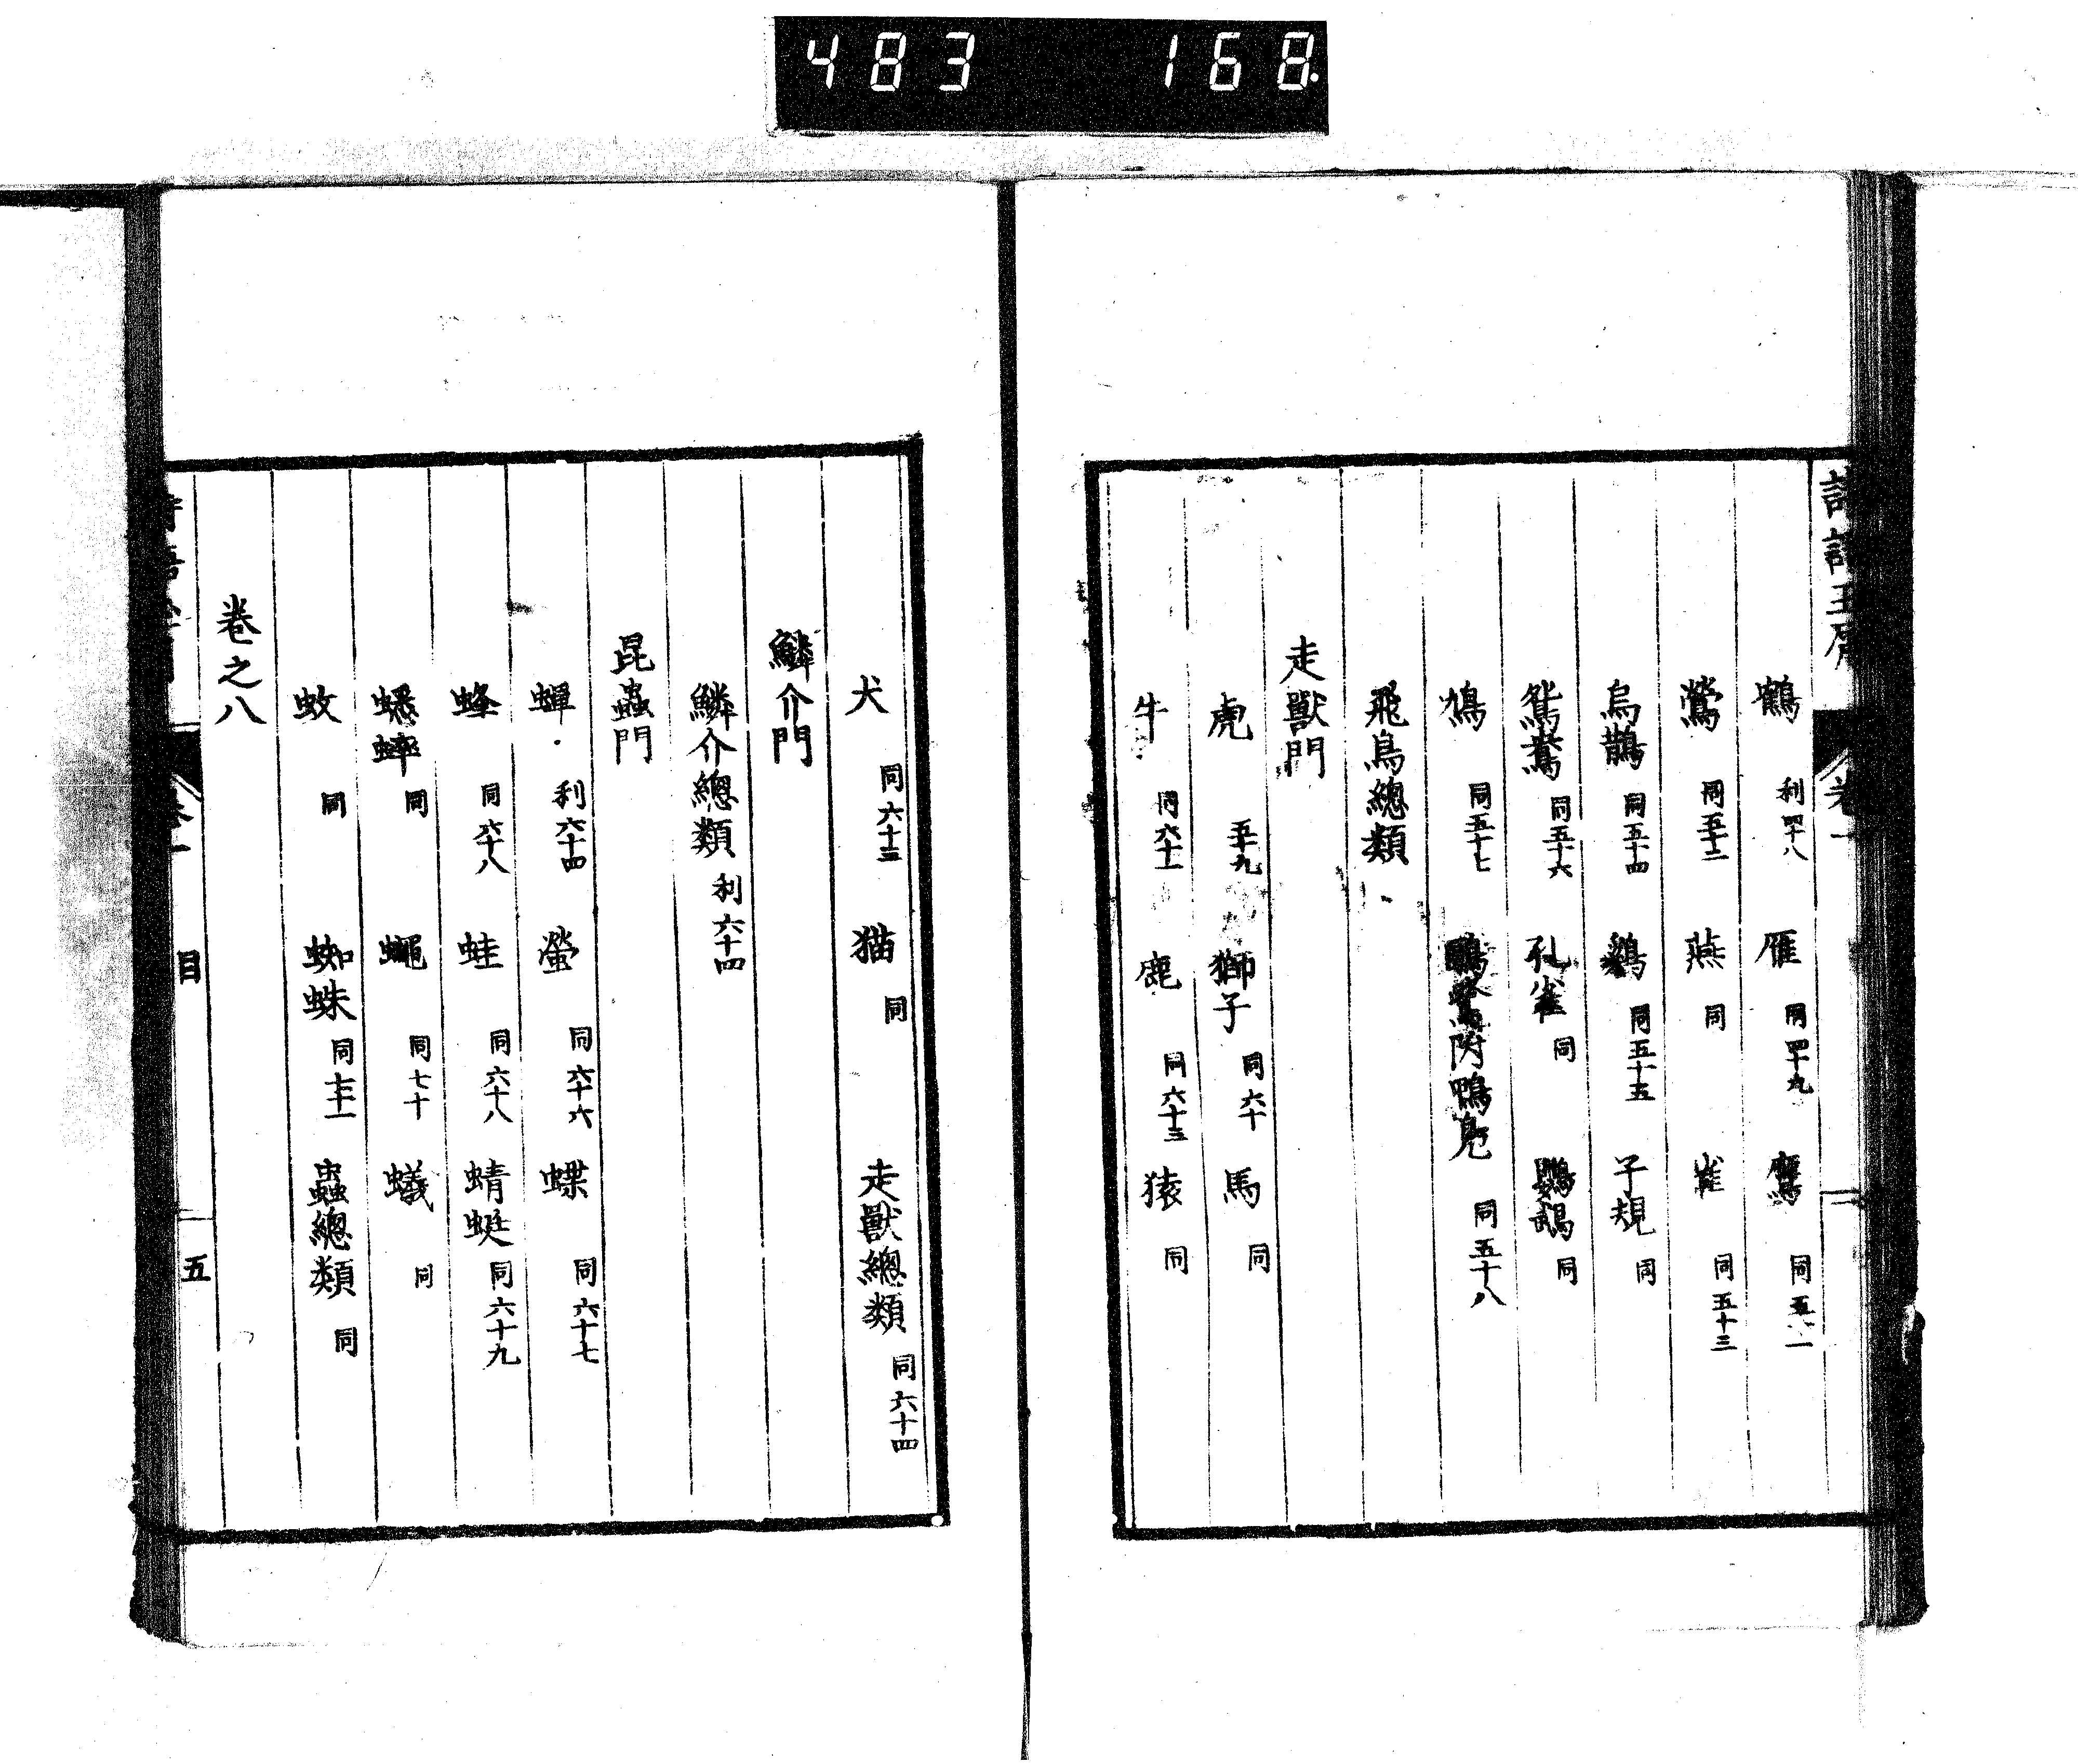 483 168
鶴 利四十八 雁 同四十九 鷹 同五十一
鶯 同五十二 燕 同 雀 同五十三
烏鵲 同五十四 鷄 同五十五 子規 同
鴛鴦 同五十六 孔雀 同 鸚鵡 同
鳩 同五十七 附鴨鳧 同五十八
飛鳥總類
走獸門
虎 五十九 獅子 同六十 馬 同
牛 同六十一 鹿 同六十三 猿 同
犬 同六十三 猫 同 走獸總類 同六十四
鱗介門
鱗介總類 利六十四
昆蟲門
蟬 利六十四 螢 同六十六 蝶 同六十七
蜂 同六十八 蛙 同六十八 蜻蜓 同六十九
蟋蟀 同 蠅 同七十 蟻 同
蚊 同 蜘蛛 同七十一 蟲總類 同
卷之八
目 五